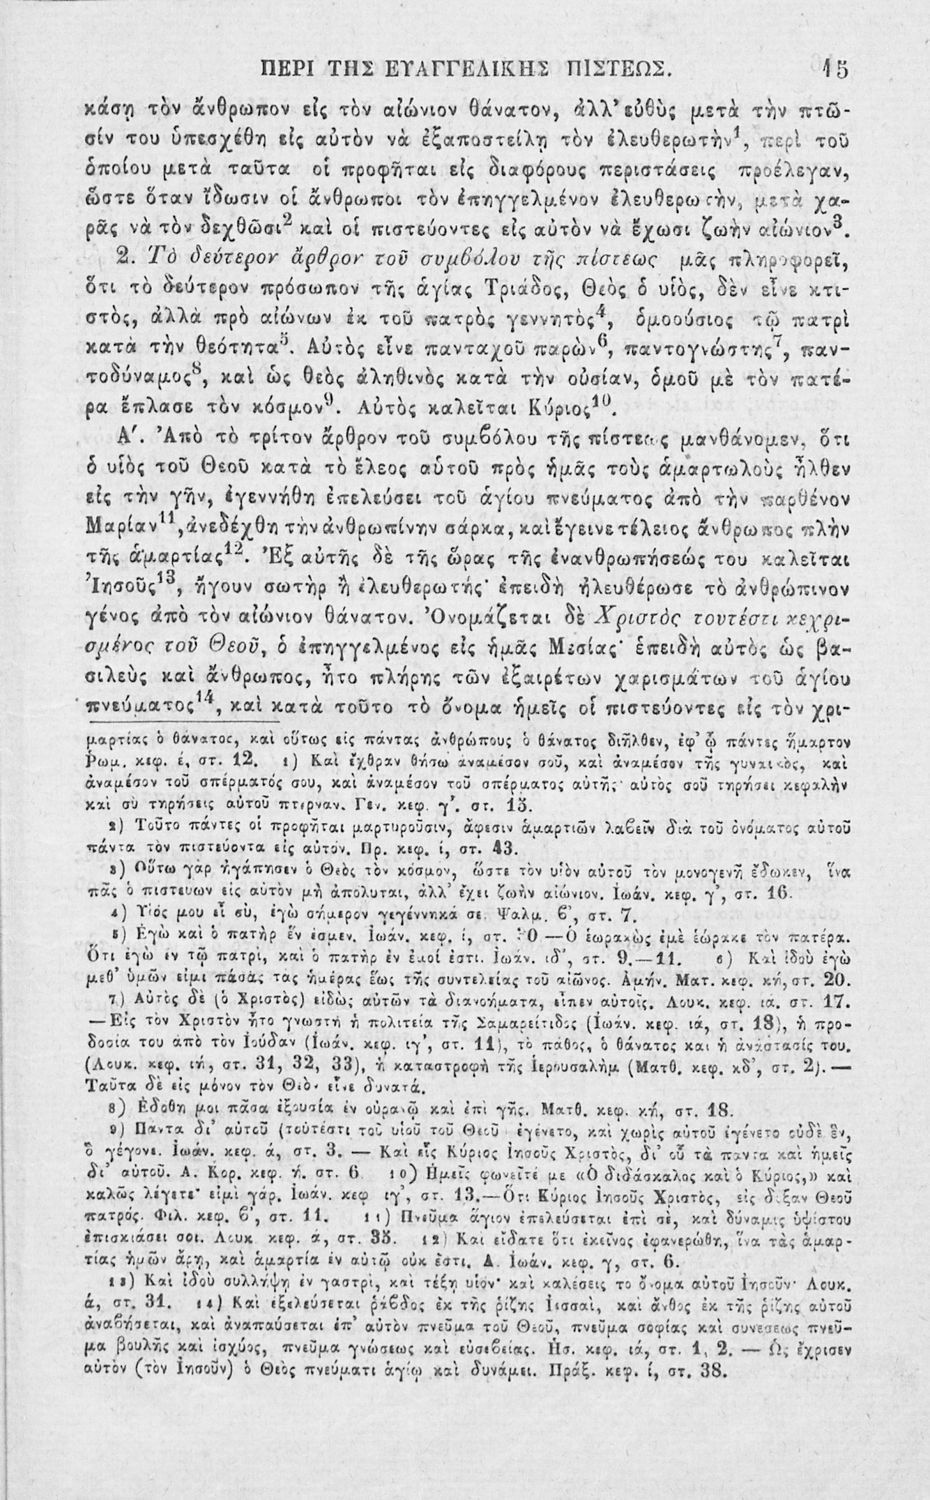 ΠΕΡΙ ΤΗΣ ΕΥΑΓΓΕΛΙΚΗΣ ΠΙΣΤΕΩΣ. 15
κάσῃ τὸν ἄνθρωπον εἰς τὸν αἰώνιον θάνατον, ἀλλ' εὐθὺς μετὰ τὴν πτῶ-
σίν του ὑπεσχέθη εἰς αὐτὸν νὰ ἐξαποστείλῃ τὸν ἐλευθερωτὴν¹, περὶ τοῦ
ὁποίου μετὰ ταῦτα οἱ προφῆται εἰς διαφόρους περιστάσεις προέλεγαν,
ὥστε ὅταν ἴδωσιν οἱ ἄνθρωποι τὸν ἐπηγγελμένον ἐλευθερωτὴν, μετὰ χα-
ρᾶς νὰ τὸν δεχθῶσι² καὶ οἱ πιστεύοντες εἰς αὐτὸν νὰ ἔχωσι ζωὴν αἰώνιον³.
2. Τὸ δεύτερον ἄρθρον τοῦ συμβόλου τῆς πίστεως μᾶς πληροφορεῖ,
ὅτι τὸ δεύτερον πρόσωπον τῆς ἁγίας Τριάδος, Θεὸς ὁ υἱὸς, δὲν εἶνε κτι-
στὸς, ἀλλὰ πρὸ αἰώνων ἐκ τοῦ πατρὸς γεννητὸς⁴, ὁμοούσιος τῷ πατρὶ
κατὰ τὴν θεότητα⁵. Αὐτὸς εἶνε πανταχοῦ παρὼν⁶, παντογνώστης⁷, παν-
τοδύναμος⁸, καὶ ὡς θεὸς ἀληθινὸς κατὰ τὴν οὐσίαν, ὁμοῦ μὲ τὸν πατέ-
ρα ἔπλασε τὸν κόσμον⁹. Αὐτὸς καλεῖται Κύριος¹⁰.
Α'. Ἀπὸ τὸ τρίτον ἄρθρον τοῦ συμβόλου τῆς πίστεως μανθάνομεν, ὅτι
ὁ υἱὸς τοῦ Θεοῦ κατὰ τὸ ἔλεος αὑτοῦ πρὸς ἡμᾶς τοὺς ἁμαρτωλοὺς ἦλθεν
εἰς τὴν γῆν, ἐγεννήθη ἐπελεύσει τοῦ ἁγίου πνεύματος ἀπὸ τὴν παρθένον
Μαρίαν¹¹, ἀνεδέχθη τὴν ἀνθρωπίνην σάρκα, καὶ ἔγεινε τέλειος ἄνθρωπος πλὴν
τῆς ἁμαρτίας¹². Ἐξ αὐτῆς δὲ τῆς ὥρας τῆς ἐνανθρωπήσεώς του καλεῖται
Ἰησοῦς¹³, ἤγουν σωτὴρ ἢ ἐλευθερωτής· ἐπειδὴ ἠλευθέρωσε τὸ ἀνθρώπινον
γένος ἀπὸ τὸν αἰώνιον θάνατον. Ὀνομάζεται δὲ Χριστὸς τουτέστι κεχρι-
σμένος τοῦ Θεοῦ, ὁ ἐπηγγελμένος εἰς ἡμᾶς Μεσίας· ἐπειδὴ αὐτὸς ὡς βα-
σιλεὺς καὶ ἄνθρωπος, ἦτο πλήρης τῶν ἐξαιρέτων χαρισμάτων τοῦ ἁγίου
πνεύματος¹⁴, καὶ κατὰ τοῦτο τὸ ὄνομα ἡμεῖς οἱ πιστεύοντες εἰς τὸν χρι-
μαρτίας ὁ θάνατος, καὶ οὕτως εἰς πάντας ἀνθρώπους ὁ θάνατος διῆλθεν, ἐφ' ᾧ πάντες ἥμαρτον
Ῥωμ. κεφ. έ, στ. 12. 1) Καὶ ἔχθραν θήσω ἀναμέσον σοῦ, καὶ ἀναμέσον τῆς γυναικὸς, καὶ
ἀναμέσον τοῦ σπέρματός σου, καὶ ἀναμέσον τοῦ σπέρματος αὐτῆς· αὐτὸς σοῦ τηρήσει κεφαλὴν
καὶ σὺ τηρήσεις αὐτοῦ πτέρναν. Γεν. κεφ. γ'. στ. 15.
2) Τοῦτο πάντες οἱ προφῆται μαρτυροῦσιν, ἄφεσιν ἁμαρτιῶν λαβεῖν διὰ τοῦ ὀνόματος αὐτοῦ
πάντα τὸν πιστεύοντα εἰς αὐτόν. Πρ. κεφ. ί, στ. 43.
3) Οὕτω γὰρ ἠγάπησεν ὁ Θεὸς τὸν κόσμον, ὥστε τὸν υἱὸν αὑτοῦ τὸν μονογενῆ ἔδωκεν, ἵνα
πᾶς ὁ πιστευων εἰς αὐτὸν μὴ ἀπόλυται, ἀλλ' ἔχει ζωὴν αἰώνιον. Ἰωάν. κεφ. γ', στ. 16.
4) Υἱός μου εἶ σὺ, ἐγὼ σήμερον γεγέννηκά σε. Ψαλμ. β', στ. 7.
5) Ἐγὼ καὶ ὁ πατὴρ ἕν ἐσμεν. Ἰωάν. κεφ. ί, στ. 30 — Ὁ ἑωρακὼς ἐμὲ ἑώρακε τὸν πατέρα.
Ὅτι ἐγὼ ἐν τῷ πατρὶ, καὶ ὁ πατὴρ ἐν ἐμοί ἐστι. Ἰωάν. ιδ', στ. 9.—11. 6) Καὶ ἰδοὺ ἐγὼ
μεθ' ὑμῶν εἰμι πάσας τὰς ἡμέρας ἕως τῆς συντελείας τοῦ αἰῶνος. Ἀμήν. Ματ. κεφ. κή, στ. 20.
7) Αὐτὸς δὲ (ὁ Χριστὸς) εἰδὼς αὐτῶν τὰ διανοήματα, εἶπεν αὐτοῖς. Λουκ. κεφ. ιά. στ. 17.
— Εἰς τὸν Χριστὸν ἦτο γνωστὴ ἡ πολιτεία τῆς Σαμαρείτιδος (Ἰωάν. κεφ. ιά, στ. 18), ἡ προ-
δοσία του ἀπὸ τὸν Ἰούδαν (Ἰωάν. κεφ. ιγ', στ. 11), τὸ πάθος, ὁ θάνατος καὶ ἡ ἀνάστασίς του.
(Λουκ. κεφ. ιή, στ. 31, 32, 33), ἡ καταστροφὴ τῆς Ἱερουσαλὴμ (Ματθ. κεφ. κδ', στ. 2).—
Ταῦτα δὲ εἰς μόνον τὸν Θεὸν εἶνε δυνατά.
8) Ἐδόθη μοι πᾶσα ἐξουσία ἐν οὐρανῷ καὶ ἐπὶ γῆς. Ματθ. κεφ. κή, στ. 18.
9) Πάντα δι' αὐτοῦ (τοὐτέστι τοῦ υἱοῦ τοῦ Θεοῦ ἐγένετο, καὶ χωρὶς αὐτοῦ ἐγένετο οὐδὲ ἓν,
ὃ γέγονε. Ἰωάν. κεφ. ά, στ. 3. — Καὶ εἷς Κύριος Ἰησοῦς Χριστὸς, δι' οὗ τὰ πάντα καὶ ἡμεῖς
δι' αὐτοῦ. Α. Κορ. κεφ. ή. στ. 6 10) Ἡμεῖς φωνεῖτέ με «Ὁ διδάσκαλος καὶ ὁ Κύριος,» καὶ
καλῶς λέγετε· εἰμὶ γάρ. Ἰωάν. κεφ ιγ', στ. 13.—Ὅτι Κύριος Ἰησοῦς Χριστὸς, εἰς δόξαν Θεοῦ
πατρός. Φιλ. κεφ. β', στ. 11. 11) Πνεῦμα ἅγιον ἐπελεύσεται ἐπὶ σὲ, καὶ δύναμις ὑψίστου
ἐπισκιάσει σοι. Λουκ κεφ. ά, στ. 35. 12) Καὶ εἴδατε ὅτι ἐκεῖνος ἐφανερώθη, ἵνα τὰς ἁμαρ-
τίας ἡμῶν ἄρῃ, καὶ ἁμαρτία ἐν αὐτῷ οὐκ ἔστι. Α Ἰωάν. κεφ. γ, στ. 6.
13) Καὶ ἰδοὺ συλλήψῃ ἐν γαστρὶ, καὶ τέξῃ υἱὸν· καὶ καλέσεις τὸ ὄνομα αὐτοῦ Ἰησοῦν· Λουκ.
ά, στ. 31. 14) Καὶ ἐξελεύσεται ῥάβδος ἐκ τῆς ῥίζης Ἰεσσαὶ, καὶ ἄνθος ἐκ τῆς ῥίζης αὐτοῦ
ἀναβήσεται, καὶ ἀναπαύσεται ἐπ' αὐτὸν πνεῦμα τοῦ Θεοῦ, πνεῦμα σοφίας καὶ συνέσεως πνεῦ-
μα βουλῆς καὶ ἰσχύος, πνεῦμα γνώσεως καὶ εὐσεβείας. Ἡσ. κεφ. ιά, στ. 1, 2. — Ὡς ἔχρισεν
αὐτὸν (τὸν Ἰησοῦν) ὁ Θεὸς πνεύματι ἁγίῳ καὶ δυνάμει. Πράξ. κεφ. ί, στ. 38.